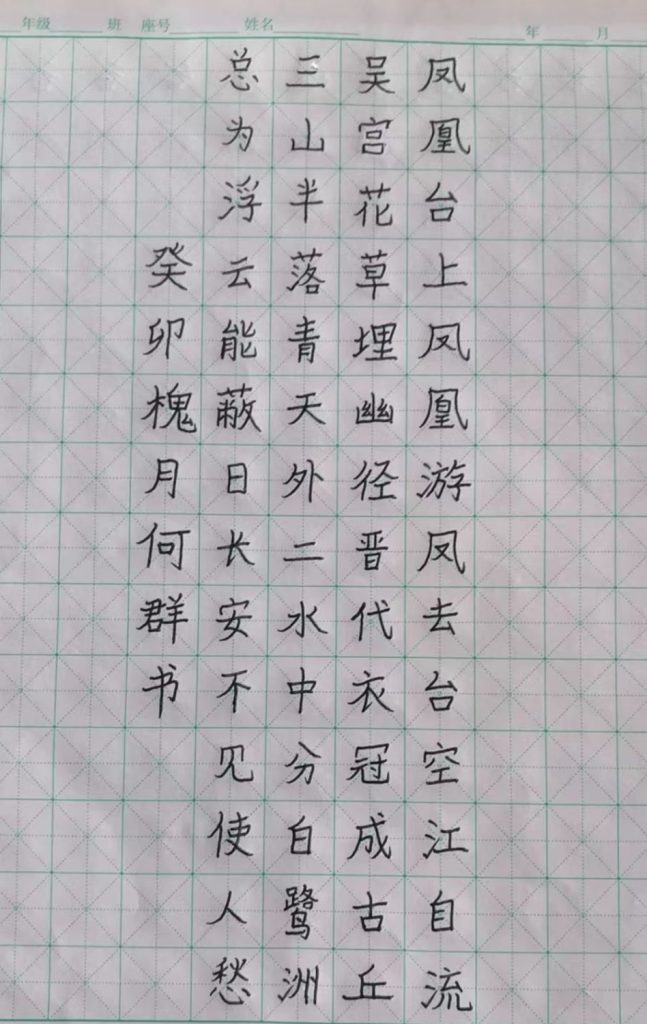 年级 班 座号 姓名 年 月
凤凰台上凤凰游凤去台空江自流
吴宫花草埋幽径晋代衣冠成古丘
三山半落青天外二水中分白鹭洲
总为浮云能蔽日长安不见使人愁
癸卯槐月何群书